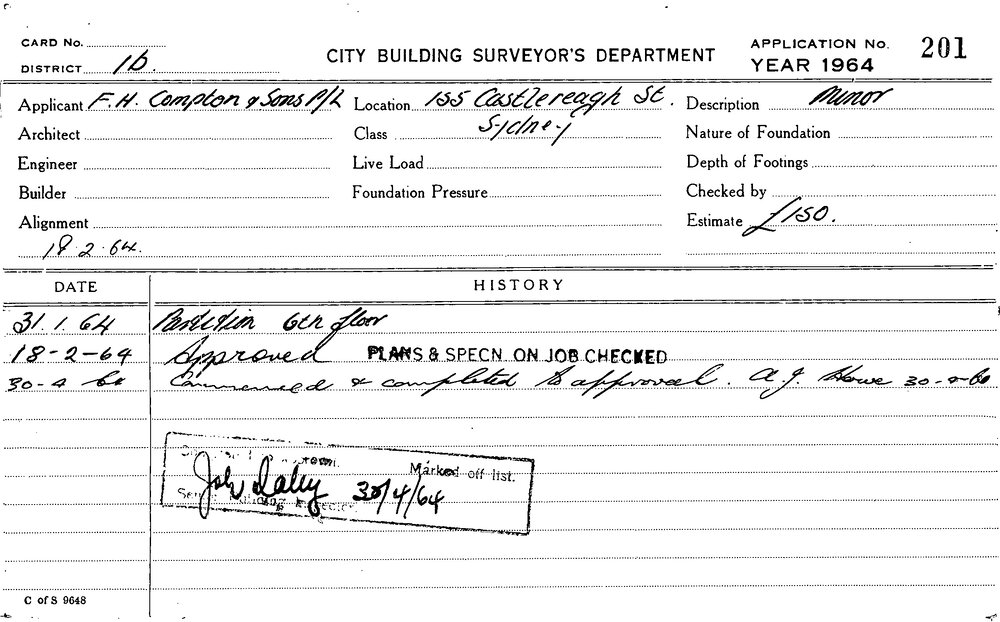 CARD No.
DISTRICT 1b.
CITY BUILDING SURVEYOR'S DEPARTMENT
APPLICATION No. 201
YEAR 1964
Applicant F.H. Compton & Sons P/L
Location 155 Castlereagh St.
Sydney
Description Minor
Architect
Class
Nature of Foundation
Engineer
Live Load
Depth of Footings
Builder
Foundation Pressure
Checked by
Alignment
Estimate £150.
18.2.64.
DATE HISTORY
31.1.64 Partition 6th floor
18-2-64 Approved PLANS & SPECN. ON JOB CHECKED
30-4 64 Commenced & completed to approval. A.J. Howe 30-4-64
Marked off list.
John Daley 30/4/64
Building
C of S 9648